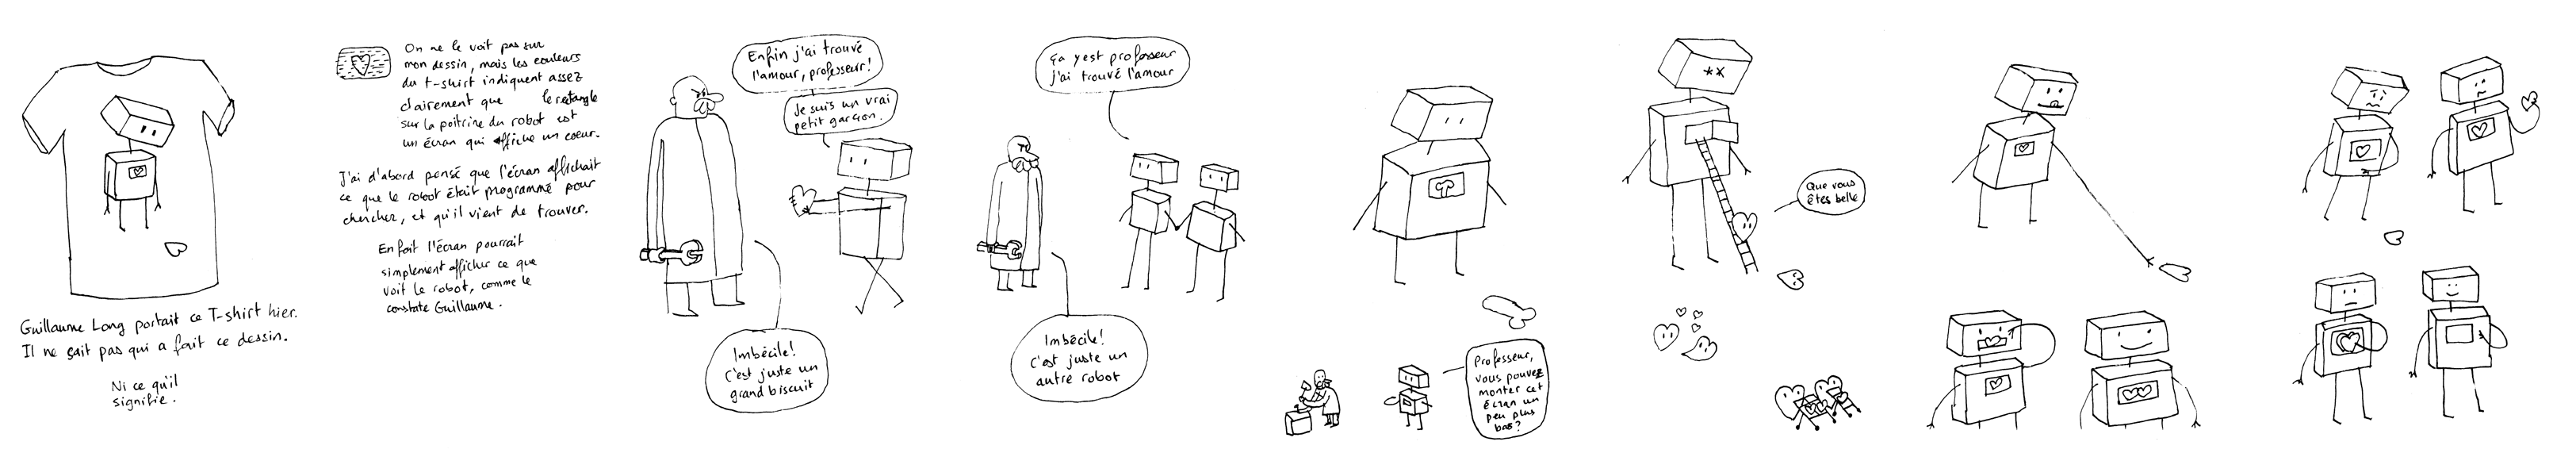 Guillaume Long portait ce T-shirt hier.
Il ne sait pas qui a fait ce dessin.
Ni ce qu'il
signifie.
On ne le voit pas sur
mon dessin, mais les couleurs
du t-shirt indiquent assez
clairement que le rectangle
sur la poitrine du robot est
un écran qui affiche un coeur.
J'ai d'abord pensé que l'écran affichait
ce que le robot était programmé pour
chercher, et qu'il vient de trouver.
En fait l'écran pourrait
simplement afficher ce que
voit le robot, comme le
constate Guillaume.
Enfin j'ai trouvé
l'amour, professeur!
Je suis un vrai
petit garçon.
Imbécile!
C'est juste un
grand biscuit
ça y est professeur
j'ai trouvé l'amour
Imbécile!
C'est juste un
autre robot
Professeur,
vous pouvez
monter cet
écran un
peu plus
bas?
Que vous
êtes belle